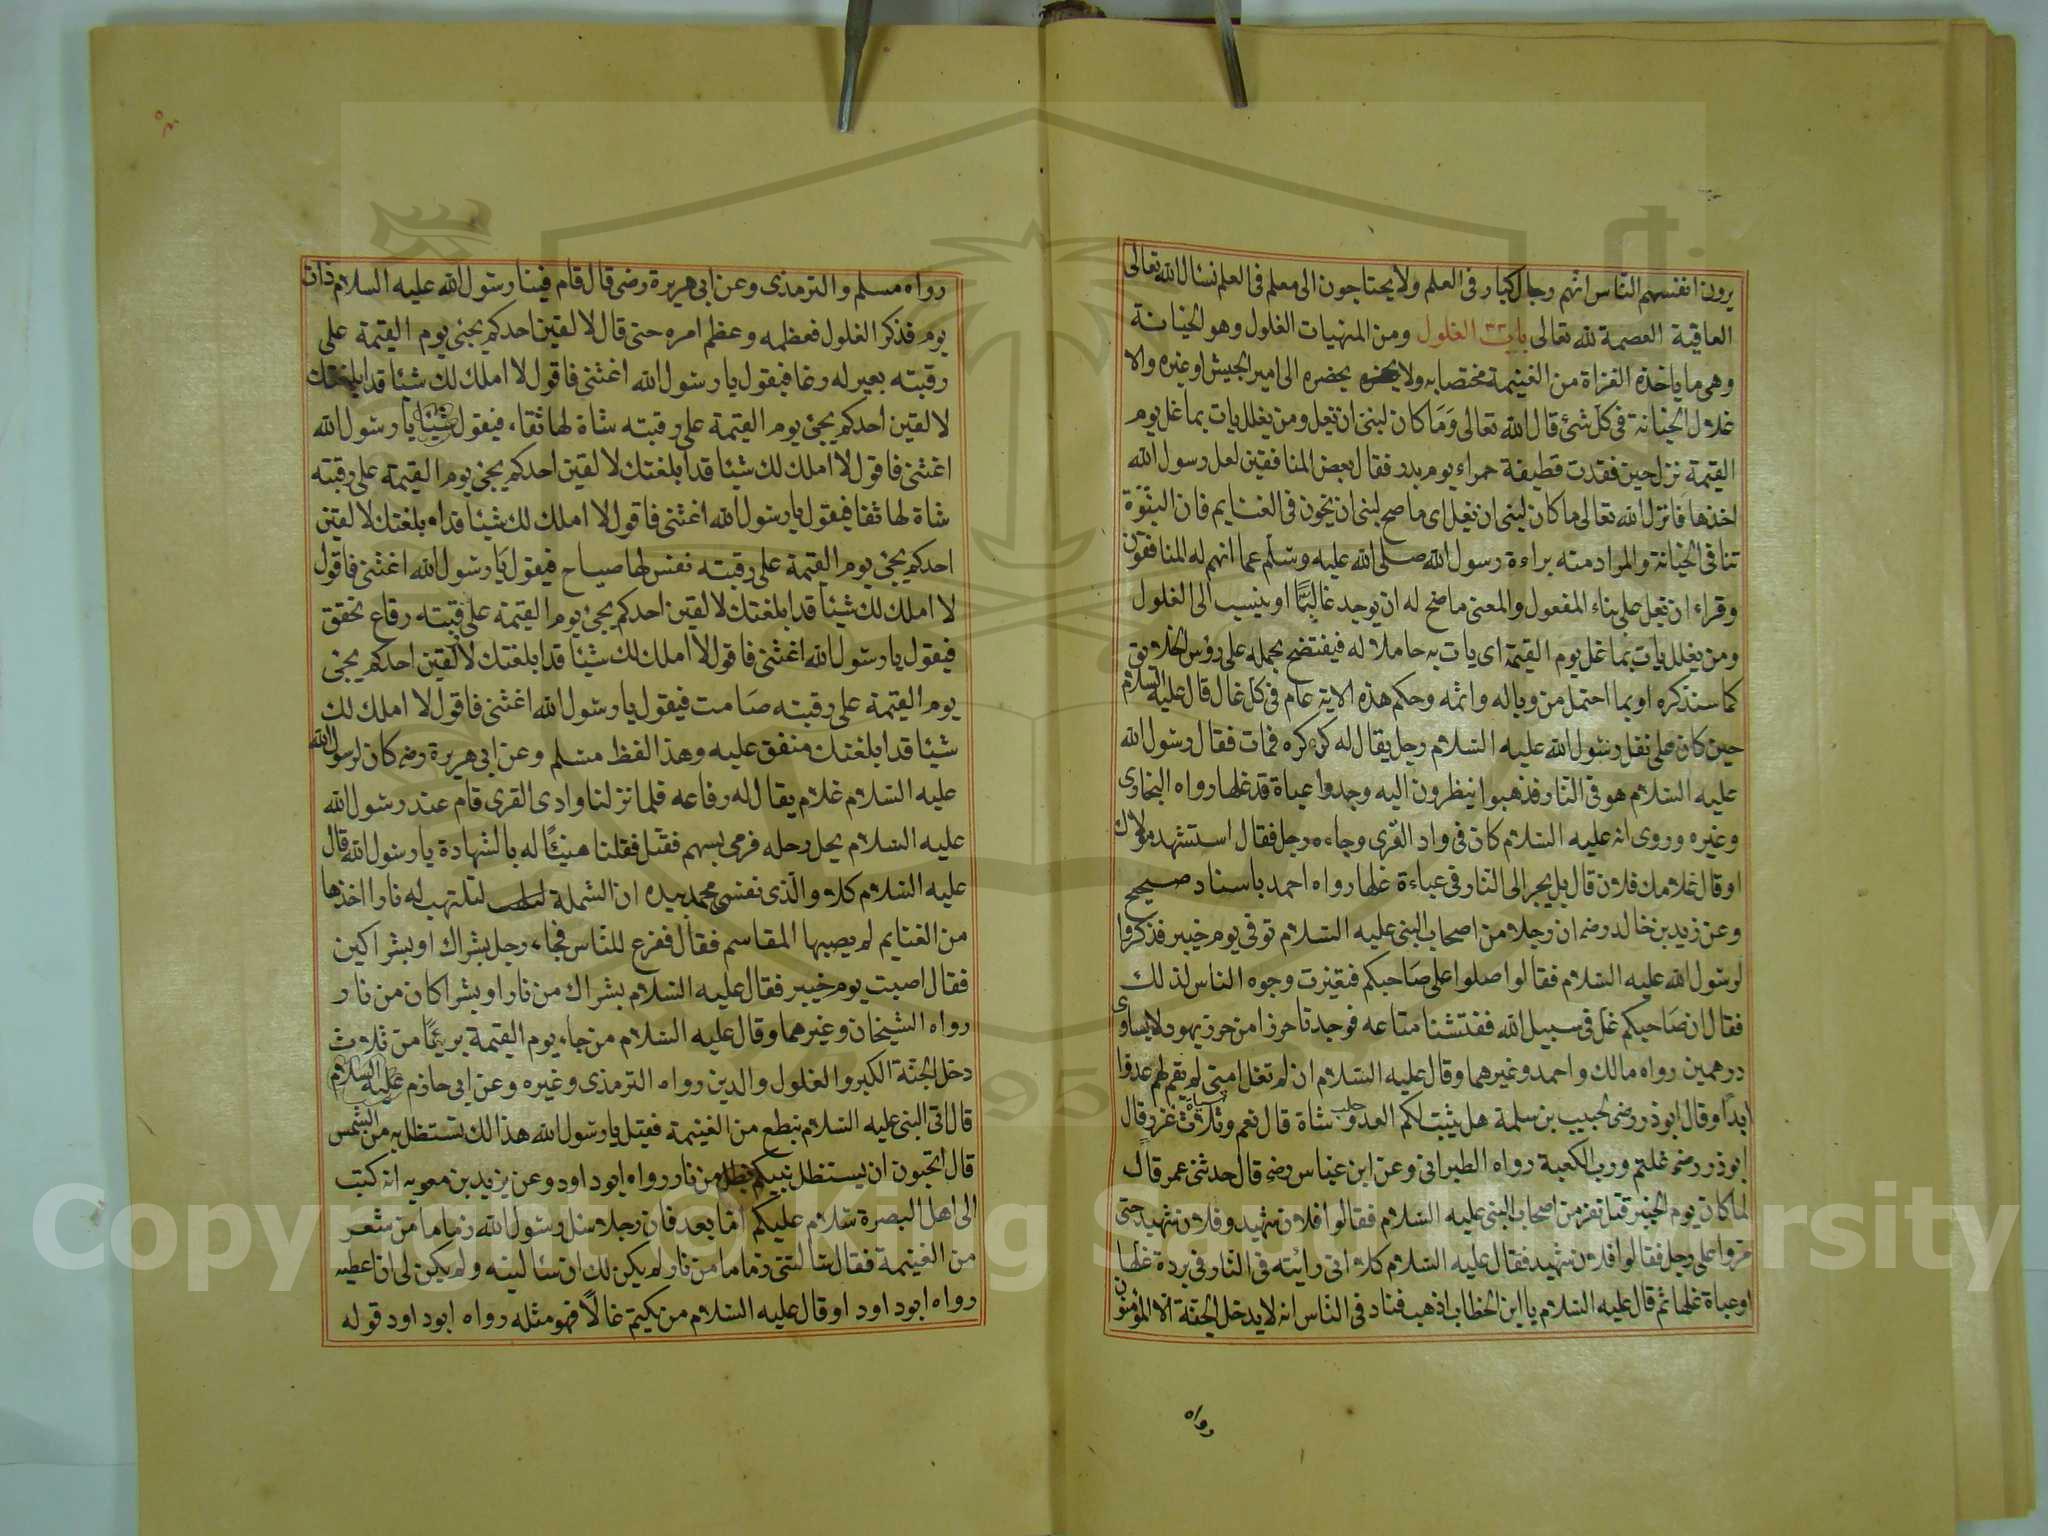 يرون انفسهم الناس انهم رجال كبار فى العلم ولا يحتاجون الى معلم فى العلم نسال الله تعالى
العاقبة العصمة لله تعالى باب الغلول ومن المنهيات الغلول وهو الخيانة
وهى ما ياخذه الغزاة من الغنيمة مختصا به ولا يحضره الى امير الجيش او غيره والا
غلال الخيانة فى كل شئ قال الله تعالى وما كان لبنى ان يغل ومن يغلل يات بما غل يوم
القيمة نزل حين فقدت قطيفة حمراء يوم بدر فقال بعض المنافقين لعل رسول الله
اخذها فانزل الله تعالى ما كان لبنى ان يغل اى ما صح لبنى ان يخون فى الغنايم فان النبوة
تنافى الخيانة والمراد منه براءة رسول الله صلى الله عليه وسلم عما اتهم له المنافقون
وقراء ان يغل على بناء المفعول والمعنى ما صح له ان يوجد غالبا او ينسب الى الغلول
ومن يغلل يات بما غل يوم القيمة اى يات به حاملا له فيفتضح بحمله على رؤس الخلايق
كما سنذكره او بما احتمل من وباله واثمه وحكم هذه الاية عام فى كل غال قال عليه السلام
حين كان على نفل رسول الله عليه السلام رجل يقال له كركره فمات فقال رسول الله
عليه السلام هو فى النار فذهبوا ينظرون اليه وجدوا عباة قد غلها رواه البخارى
وغيره وروى انه عليه السلام كان فى واد القرى وجاءه رجل فقال استشهد مولاك
او قال غلامك فلان قال بل يجر الى النار فى عباءة غلها رواه احمد باسناد صحيح
وعن زيد بن خالد رضه ان رجلا من اصحاب البنى عليه السلام توفى يوم خيبر فذكروا
لرسول الله عليه السلام فقالوا صلوا على صاحبكم فتغيرت وجوه الناس لذلك
فقال ان صاحبكم غل فى سبيل الله ففتشنا متاعه فوجدنا خرزا من خرز يهود لا يساوى
درهمين رواه مالك واحمد وغيرهما وقال عليه السلام ان لم تغل امتى لم يقم لهم عدوا
ابدا وقال ابوذر رضى لحبيب بن سلمة هل يثبت لكم العدو حلب شاة قال نعم وثلاث شياة غزر قال
ابوذر رضه غلتم ورب الكعبة رواه الطبرانى وعن ابن عباس رضه قال حدثنى عمر قال
لما كان يوم الخيبر قتل نفر من اصحاب البنى عليه السلام فقالوا فلان شهيد وفلان شهيد حتى
مروا على رجل فقالوا فلان شهيد فقال عليه السلام كلا انى رائته فى النار فى بردة غلها
او عباة غلها ثم قال عليه السلام يا ابن الخطاب اذهب فناد فى الناس انه لا يدخل الجنة الا المؤمنون
رواه
رواه مسلم والترمذى وعن ابى هريرة رضى قال قام فينا رسول الله عليه السلام ذات
يوم فذكر الغلول فعظمه وعظم امره حتى قال لا لقين احدكم يجئ يوم القيمة على
رقبته بعير له رغا فيقول يا رسول الله اغثنى فاقول لا املك لك شئا قد ابلغتك
لا لقين احدكم يجئ يوم القيمة على رقبته شاة لها ثقاء فيقول شيئا يا رسول الله
اغثنى فاقول لا املك لك شيئا قد ابلغتك لا لقين احدكم يجئ يوم القيمة على رقبته
شاة لها ثفا فيقول يا رسول الله اغثنى فاقول لا املك لك شيئا قد ابلغتك لا لقين
احدكم يجئ يوم القيمة على رقبته نفس لها صياح فيقول يا رسول الله اغثنى فاقول
لا املك لك شيئا قد ابلغتك لا لقين احدكم يجئ يوم القيمة على رقبته رقاع تخفق
فيقول يا رسول الله اغثنى فاقول لا املك لك شيئا قد ابلغتك لا لقين احدكم يجئ
يوم القيمة على رقبته صامت فيقول يا رسول الله اغثنى فاقول لا املك لك
شيئا قد ابلغتك متفق عليه وهذا لفظ مسلم وعن ابى هريرة رضه كان لرسول الله
عليه السلام غلام يقال له رفاعه فلما نزلنا وادى القرى قام عند رسول الله
عليه السلام يحل رحله فرمى بسهم فقتل فقلنا هنيئا له بالشهادة يا رسول الله قال
عليه السلام كلا والذى نفسى محمد بيده ان الشملة لتلتهب له نارا اخذها
من الغنايم لم يصبها المقاسم فقال ففزع للناس فجاء رجل بشراك او بشراكين
فقال اصبت يوم خيبر فقال عليه السلام بشراك من نار او بشراكان من نار
رواه الشيخان وغيرهما وقال عليه السلام من جاء يوم القيمة بريئا من ثلاث
دخل الجنة الكبر والغلول والدين رواه الترمذى وغيره وعن ابى حازم عليه السلام
قال اتى البنى عليه السلام بنطع من الغنيمة فقيل يا رسول الله هذا لك تستظل به من الشمس
قال اتحبون ان يستظل نبيكم بظل من نار رواه ابوداود وعن يزيد بن معويه انه كتب
الى اهل البصرة سلام عليكم اما بعد فان رجلا سئل رسول الله زماما من شعر
من الغنيمة فقال سالتنى زماما من نار لم يكن لك ان تسالينه ولم يكن لى ان اعطيه
رواه ابوداود او قال عليه السلام من يكتم غالا فهو مثله رواه ابوداود قوله
Copyright © King Saud University